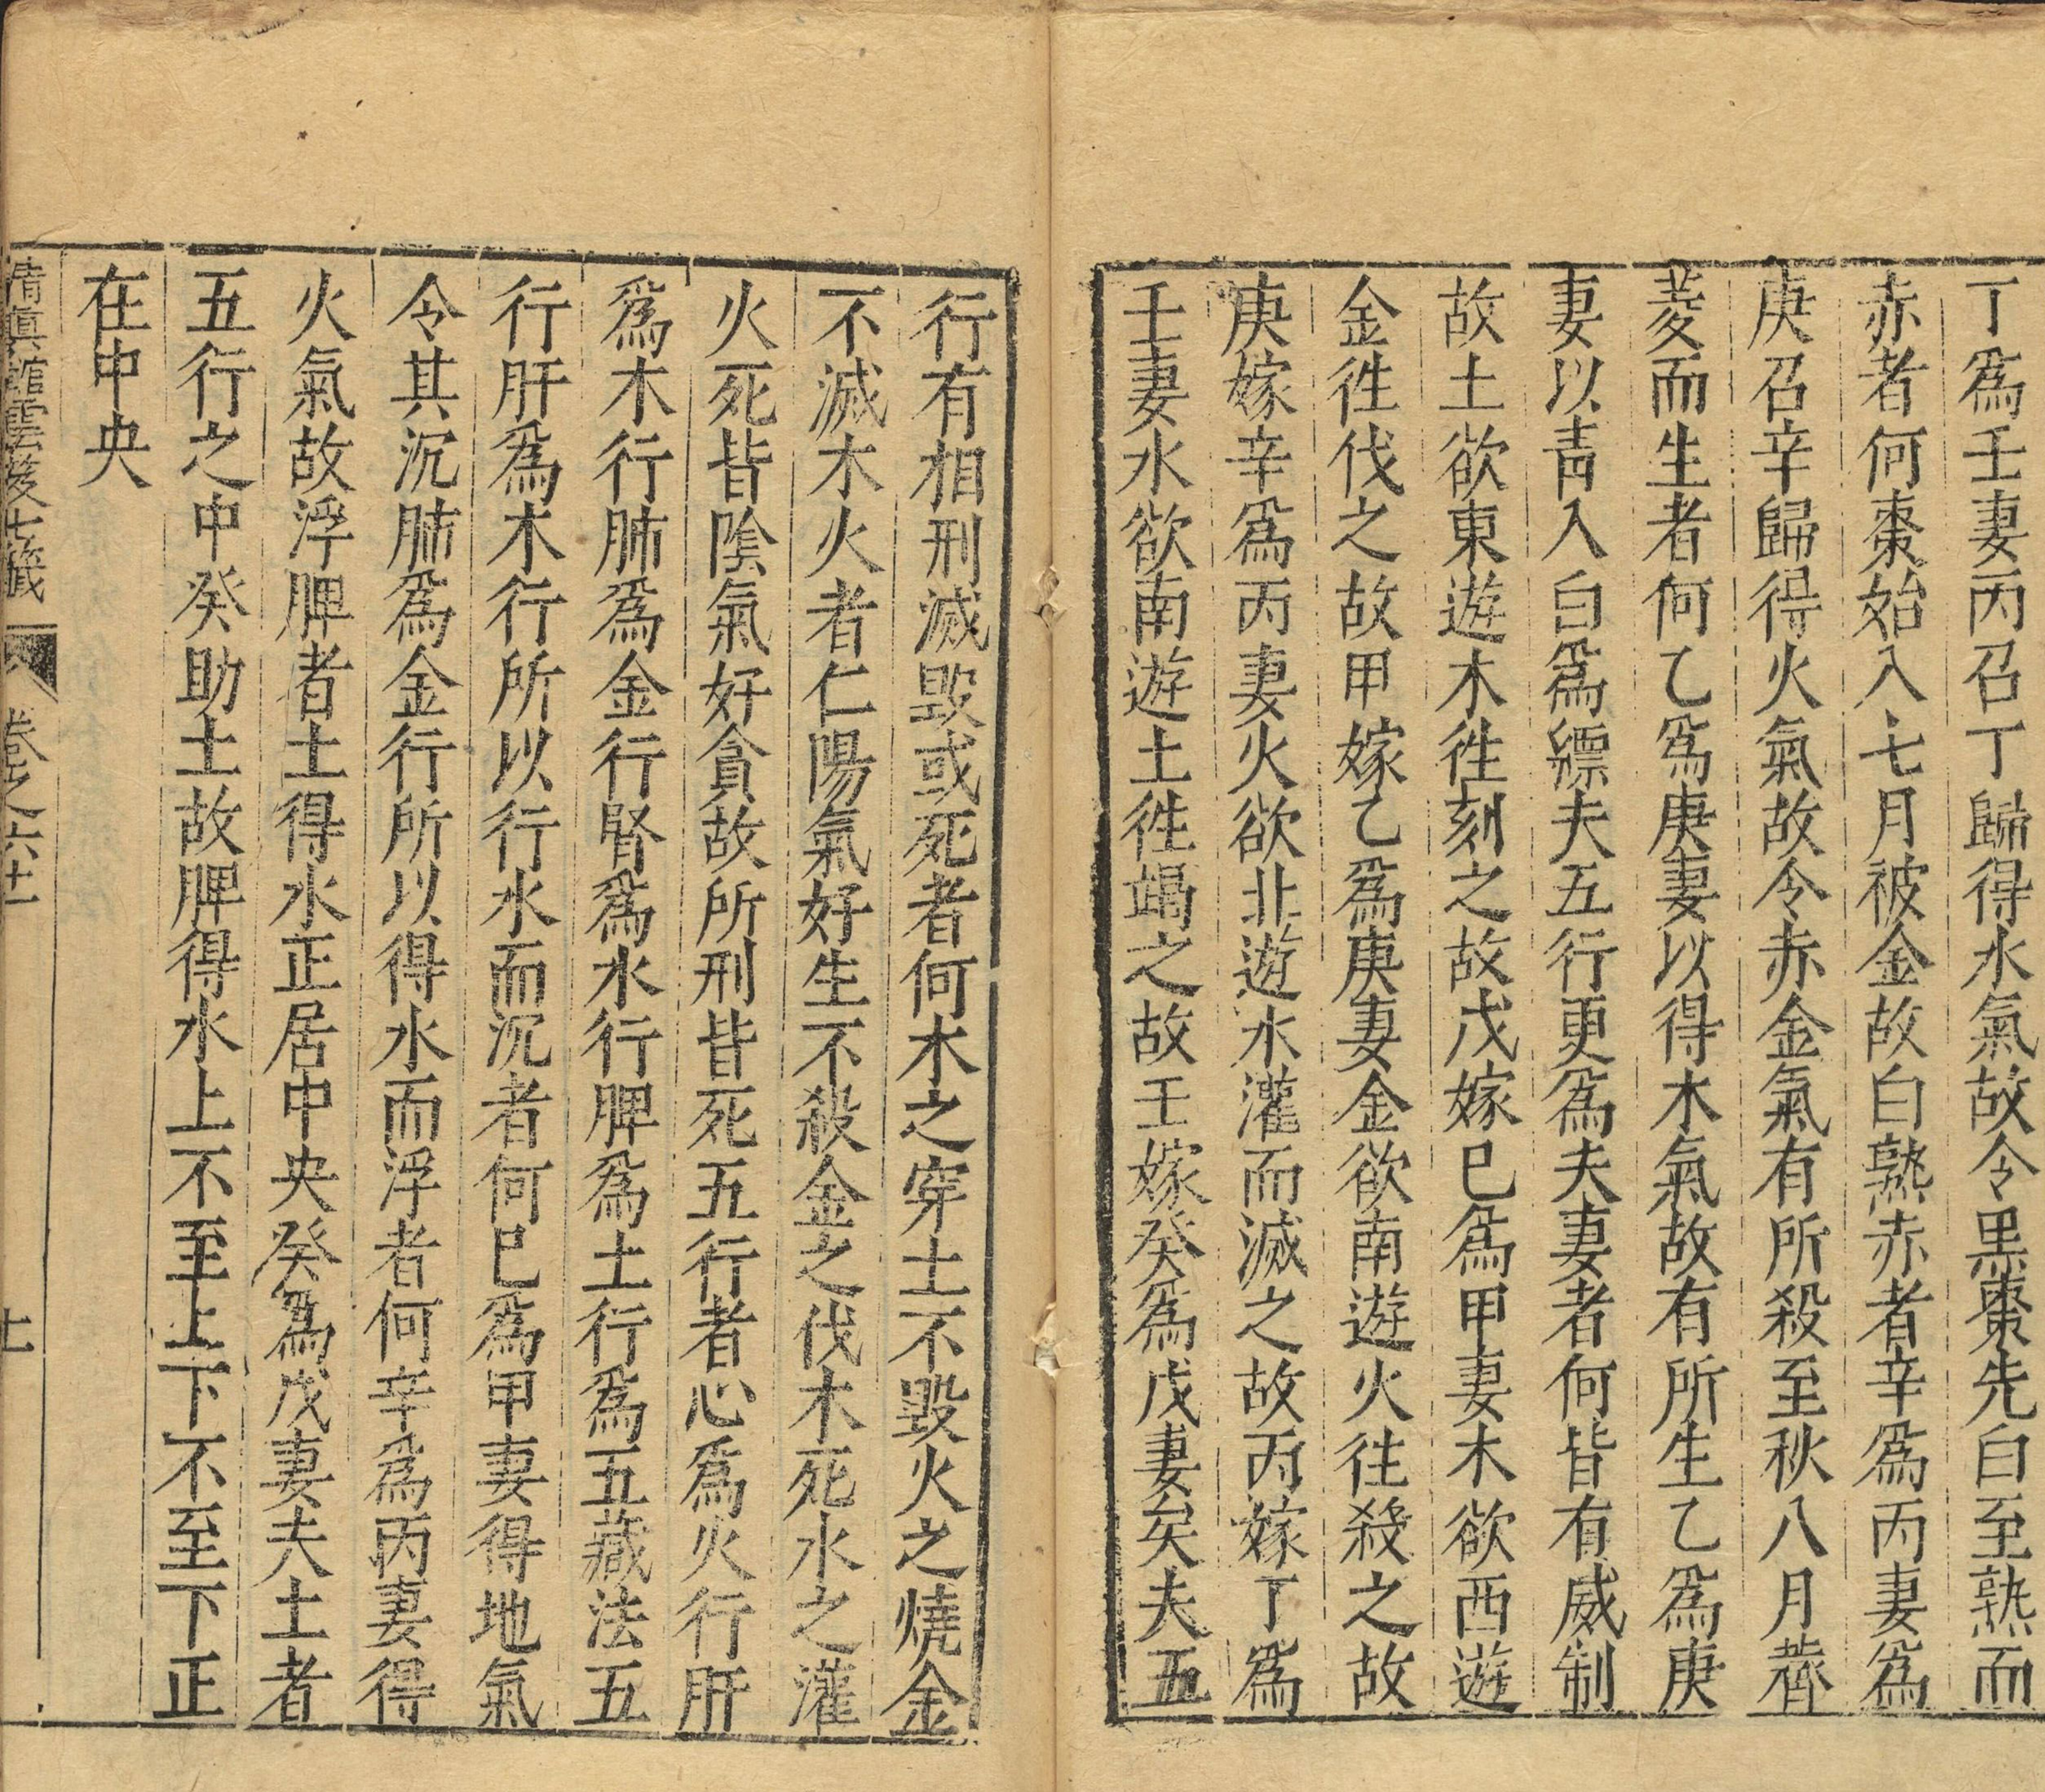 丁爲壬妻丙召丁歸得水氣故令黒棗先白至熟而
赤者何棗始入七月被金故白熟赤者辛爲丙妻爲
庚召辛歸得火氣故令赤金氣有所殺至秋八月薺
菱而生者何乙爲庚妻以得木氣故有所生乙爲庚
妻以青入白爲縹夫五行更爲夫妻者何皆有威制
故土欲東遊木徃刻之故戊嫁巳爲甲妻木欲西遊
金徃伐之故甲嫁乙爲庚妻金欲南遊火往殺之故
庚嫁辛爲丙妻火欲北遊水灌而滅之故丙嫁丁爲
壬妻水欲南遊土徃竭之故壬嫁癸爲戊妻矣夫五
行有相刑滅毀或死者何木之穿土不毀火之燒金
不滅木火者仁陽氣好生不殺金之伐木死水之灌
火死皆陰氣好貪故所刑皆死五行者心爲火行肝
爲木行肺爲金行腎爲水行脾爲土行爲五藏法五
行肝爲木行所以行水而沉者何巳爲甲妻得地氣
令其沉肺爲金行所以得水而浮者何辛爲丙妻得
火氣故浮脾者土得水正居中央癸爲戊妻夫土者
五行之中癸助土故脾得水上不至上下不至下正
在中央
清眞館雲笈七籤 卷之六十一